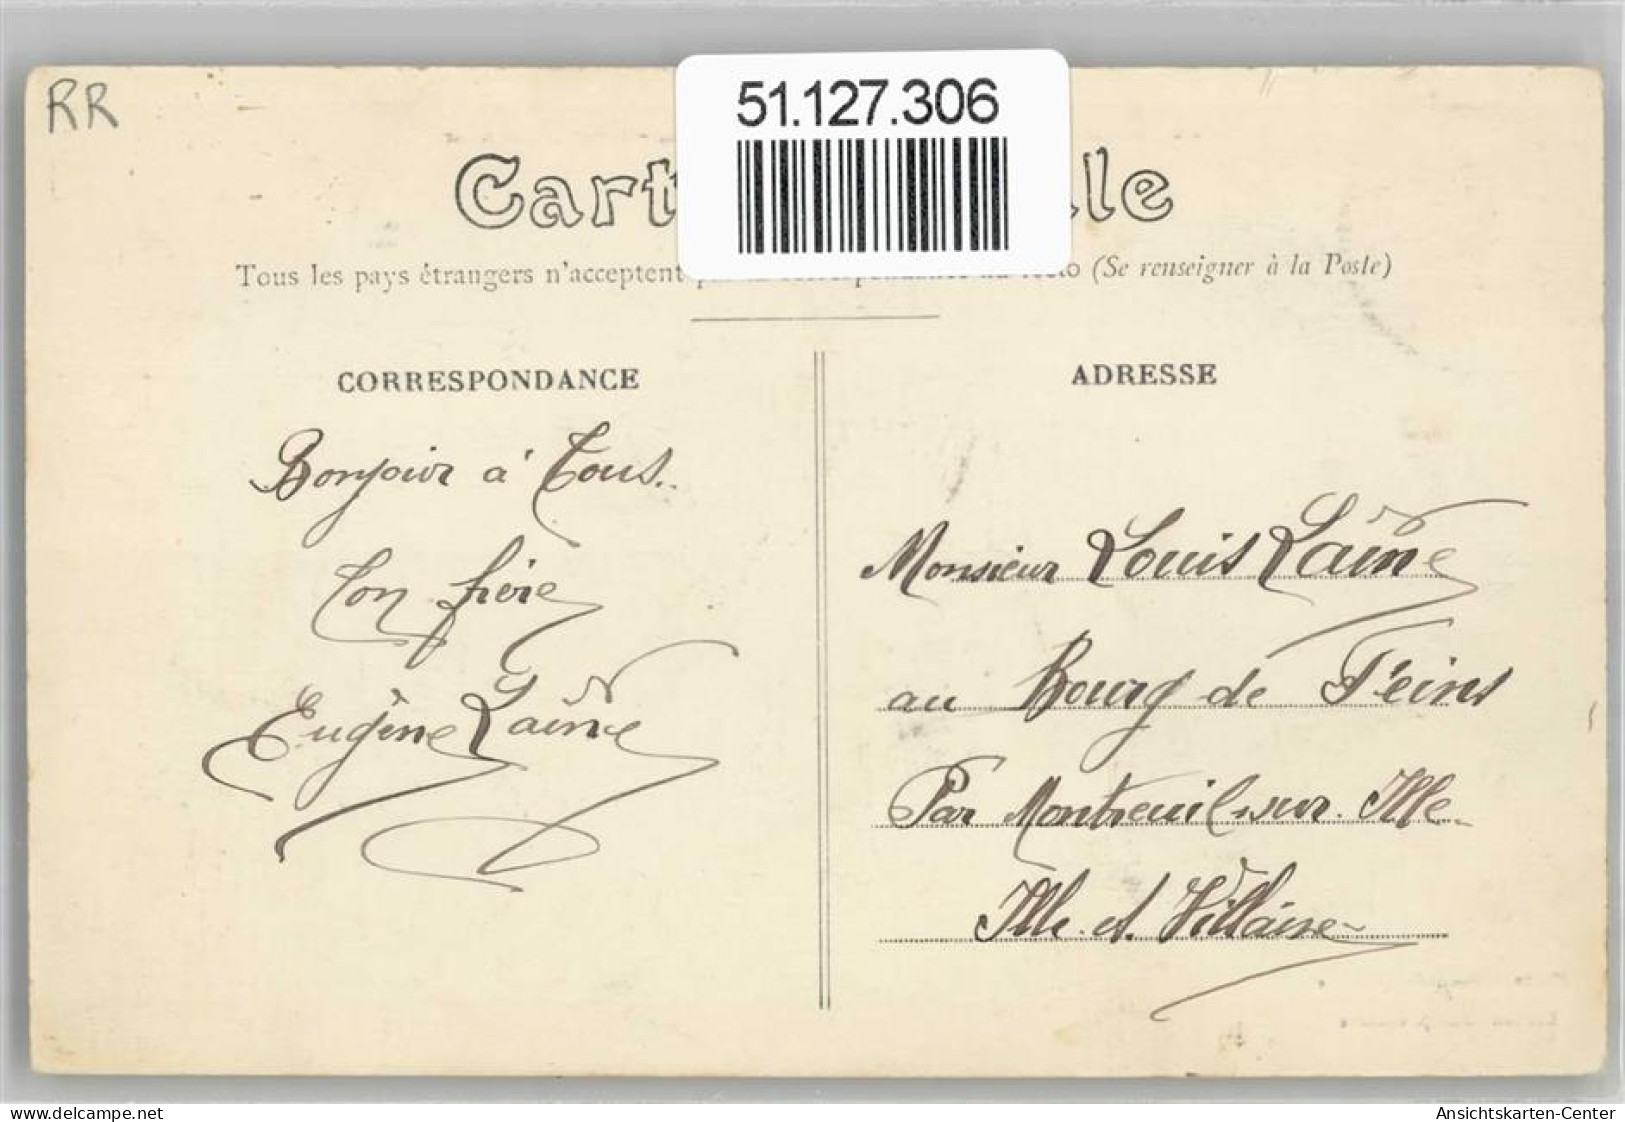 RR
51.127.306
Cart lle
Tous les pays étrangers n'acceptent (Se renseigner à la Poste)
CORRESPONDANCE
ADRESSE
Bonjour à Tous.
Ton frère
Eugène Lainé
Monsieur Louis Lainé
au Bourg de Feins
Par Montreuil-sur-Ille
Ille-et-Villaine
delcampe.net
Ansichtskarten-Center